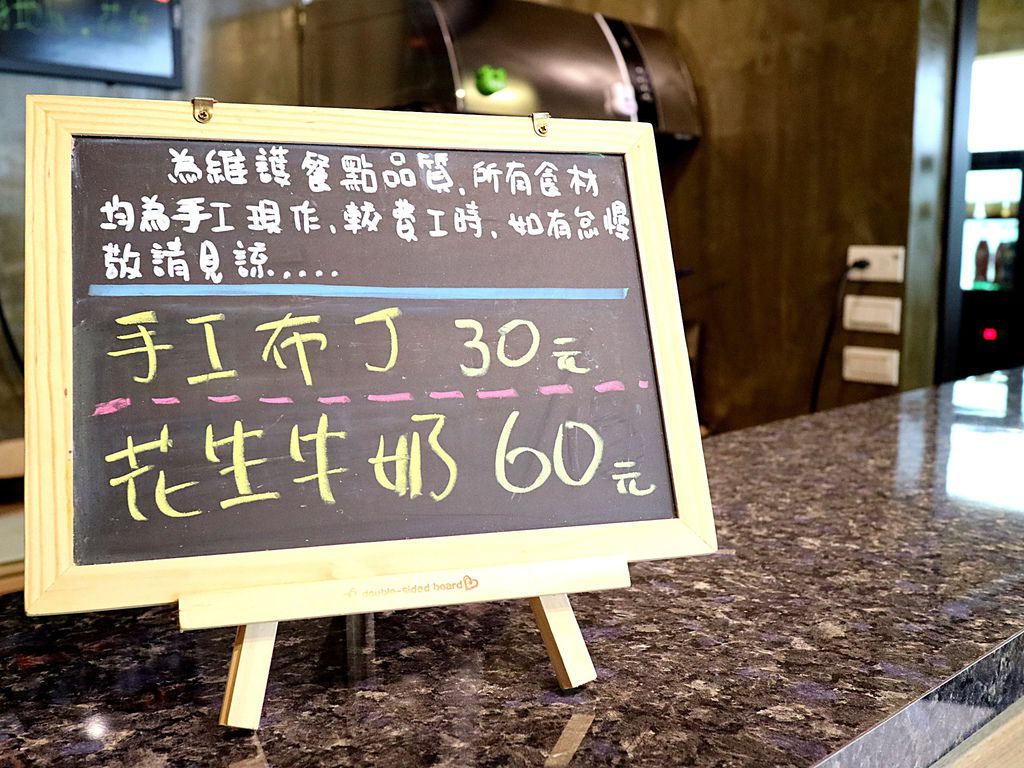 為維護餐點品質,所有食材
均為手工現作,較費工時,如有怠慢
敬請見諒....
手工布丁 30元
花生牛奶 60元
double-sided board